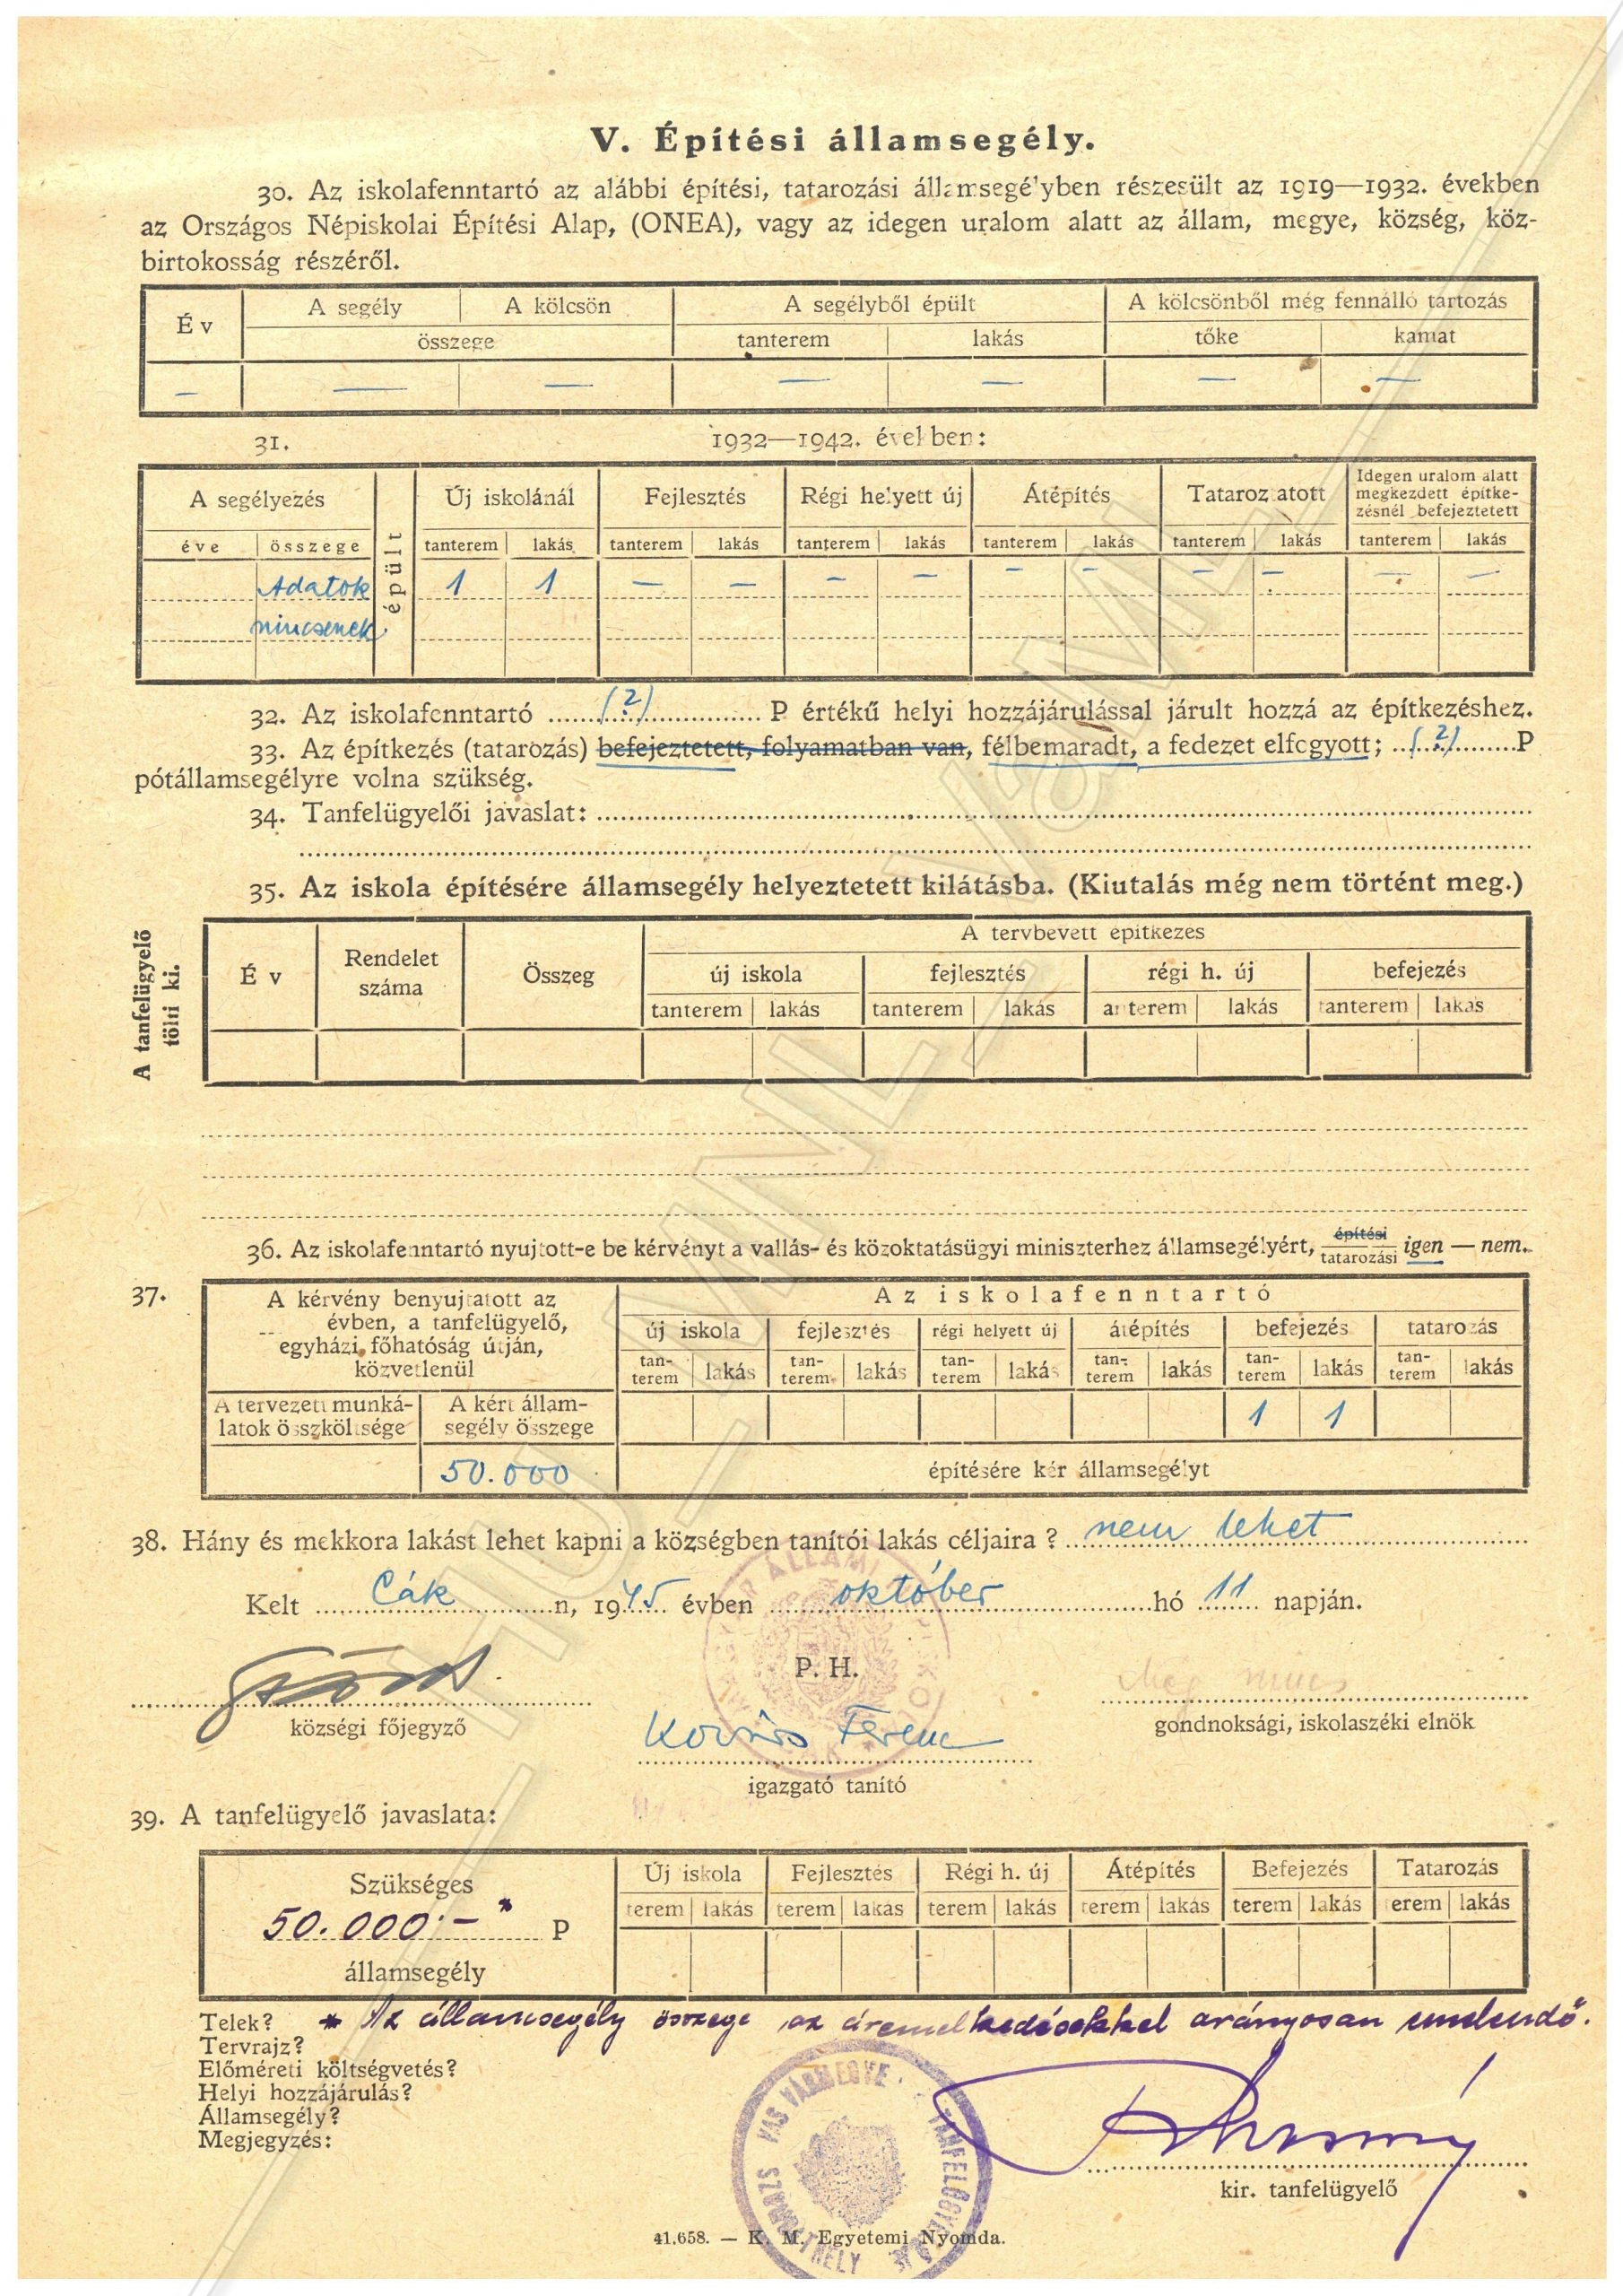 V. Építési államsegély.
30. Az iskolafenntartó az alábbi építési, tatarozási államsegélyben részesült az 1919—1932. években
az Országos Népiskolai Építési Alap, (ONEA), vagy az idegen uralom alatt az állam, megye, község, köz-
birtokosság részéről.
Év A segély A kölcsön A segélyből épült A kölcsönből még fennálló tartozás
összege tanterem lakás tőke kamat
— — — — — — —
31. 1932—1942. években:
A segélyezés épült Új iskolánál Fejlesztés Régi helyett új Átépítés Tatarozatott Idegen uralom alatt
megkezdett építke-
zésnél befejeztetett
éve összege tanterem lakás tanterem lakás tanterem lakás tanterem lakás tanterem lakás tanterem lakás
Adatok 1 1 — — — — — — — — — —
nincsenek
32. Az iskolafenntartó (?) P értékű helyi hozzájárulással járult hozzá az építkezéshez.
33. Az építkezés (tatarozás) befejeztetett, folyamatban van, félbemaradt, a fedezet elfogyott; (?) P
pótállamsegélyre volna szükség.
34. Tanfelügyelői javaslat:
35. Az iskola építésére államsegély helyeztetett kilátásba. (Kiutalás még nem történt meg.)
A tanfelügyelő
tölti ki.
A tervbevett építkezés
Év Rendelet
száma Összeg új iskola fejlesztés régi h. új befejezés
tanterem lakás tanterem lakás anterem lakás tanterem lakás
36. Az iskolafenntartó nyujtott-e be kérvényt a vallás- és közoktatásügyi miniszterhez államsegélyért, építési
tatarozási igen — nem.
37. A kérvény benyujtatott az
évben, a tanfelügyelő,
egyházi főhatóság útján,
közvetlenül
Az iskolafenntartó
új iskola fejlesztés régi helyett új átépítés befejezés tatarozás
tan-
terem lakás tan-
terem lakás tan-
terem lakás tan-
terem lakás tan-
terem lakás tan-
terem lakás
A tervezett munká-
latok összköltsége A kért állam-
segély összege 1 1
50.000 építésére kér államsegélyt
38. Hány és mekkora lakást lehet kapni a községben tanítói lakás céljaira? nem lehet
Kelt Cák n, 1945 évben október hó 11 napján.
P. H.
Még nincs
községi főjegyző
gondnoksági, iskolaszéki elnök
Kovács Ferenc
igazgató tanító
39. A tanfelügyelő javaslata:
Szükséges
50.000.— * P
államsegély
Új iskola Fejlesztés Régi h. új Átépítés Befejezés Tatarozás
terem lakás terem lakás terem lakás terem lakás terem lakás erem lakás
Telek? * Az államsegély összege az áremelkedésekkel arányosan emelendő.
Tervrajz?
Előméreti költségvetés?
Helyi hozzájárulás?
Államsegély?
Megjegyzés:
VAS VÁRMEGYE
SZOMBATHELY
kir. tanfelügyelő
41.658. — K. M. Egyetemi Nyomda.
HU_MNL_VaML